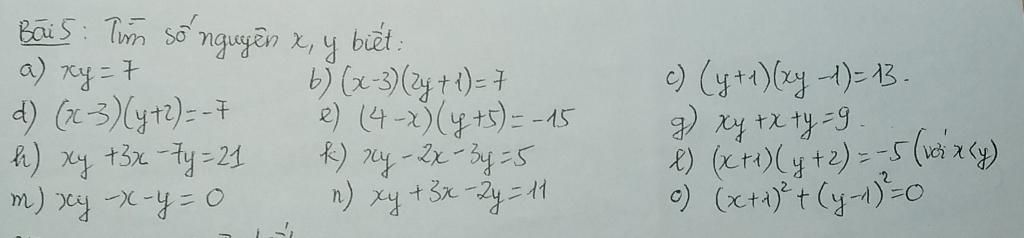 Bài 5: Tìm số nguyên x, y biết:
a) xy = 7 b) (x-3)(2y+1)=7 c) (y+1)(xy-1)=13.
d) (x-3)(y+2)=-7 e) (4-x)(y+5)=-15 g) xy+x+y=9.
h) xy+3x-7y=21 k) xy-2x-3y=5 l) (x+1)(y+2)=-5 (với x<y)
m) xy-x-y=0 n) xy+3x-2y=11 o) (x+1)²+(y-1)²=0